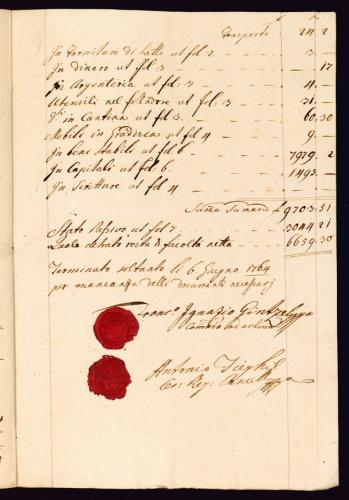 f
Trasporto 242
In forniture di Letto ut fol 2 3.
In dinaro ut fol 3 . 17
In Argenteria ut fol: 3 4.
Utensili nel folladore ut fol: 3 31.
in Cantina ut fol 3. 60.30
Mobile in ut fol 4 9.
In beni stabile ut fol 6 7979. 2
In Capitali ut fol: 6. 1493.
In Scritture ut fol 4
Suma Sumarum f 9703.51
Stato Passivo ut fol 7 3044.21
Quale detrato resta di facoltà netta 6659.30
Terminato soltanto li 6. Giugno 1764
per mancanza delli documenti necessarj
Franc.o Ignazio
Antonio